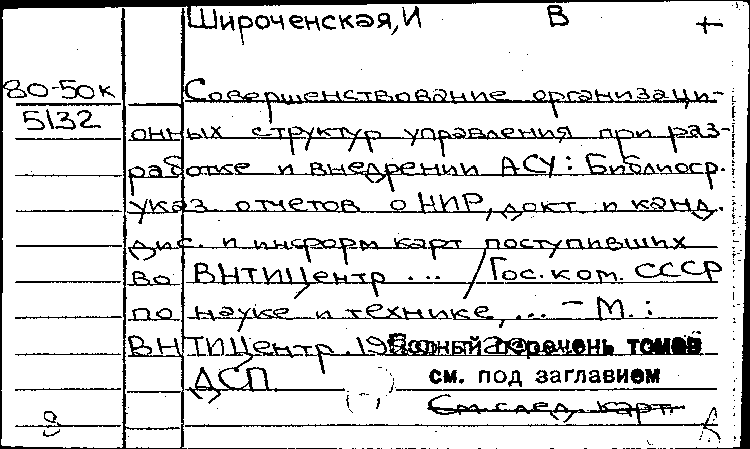 Широченская, И В +
80-50к
5132
Совершенствование организаци-
онных структур управления при раз-
работке и внедрении АСУ: Библиогр.
указ. отчетов о НИР, докт. и канд.
дис. и информ карт поступивших
во ВНТИЦентр ... / Гос. ком. СССР
по науке и технике, ... – М.:
ВНТИЦентр. 19
Полный перечень томов
ДСП.
см. под заглавием
См. след. карт.
8